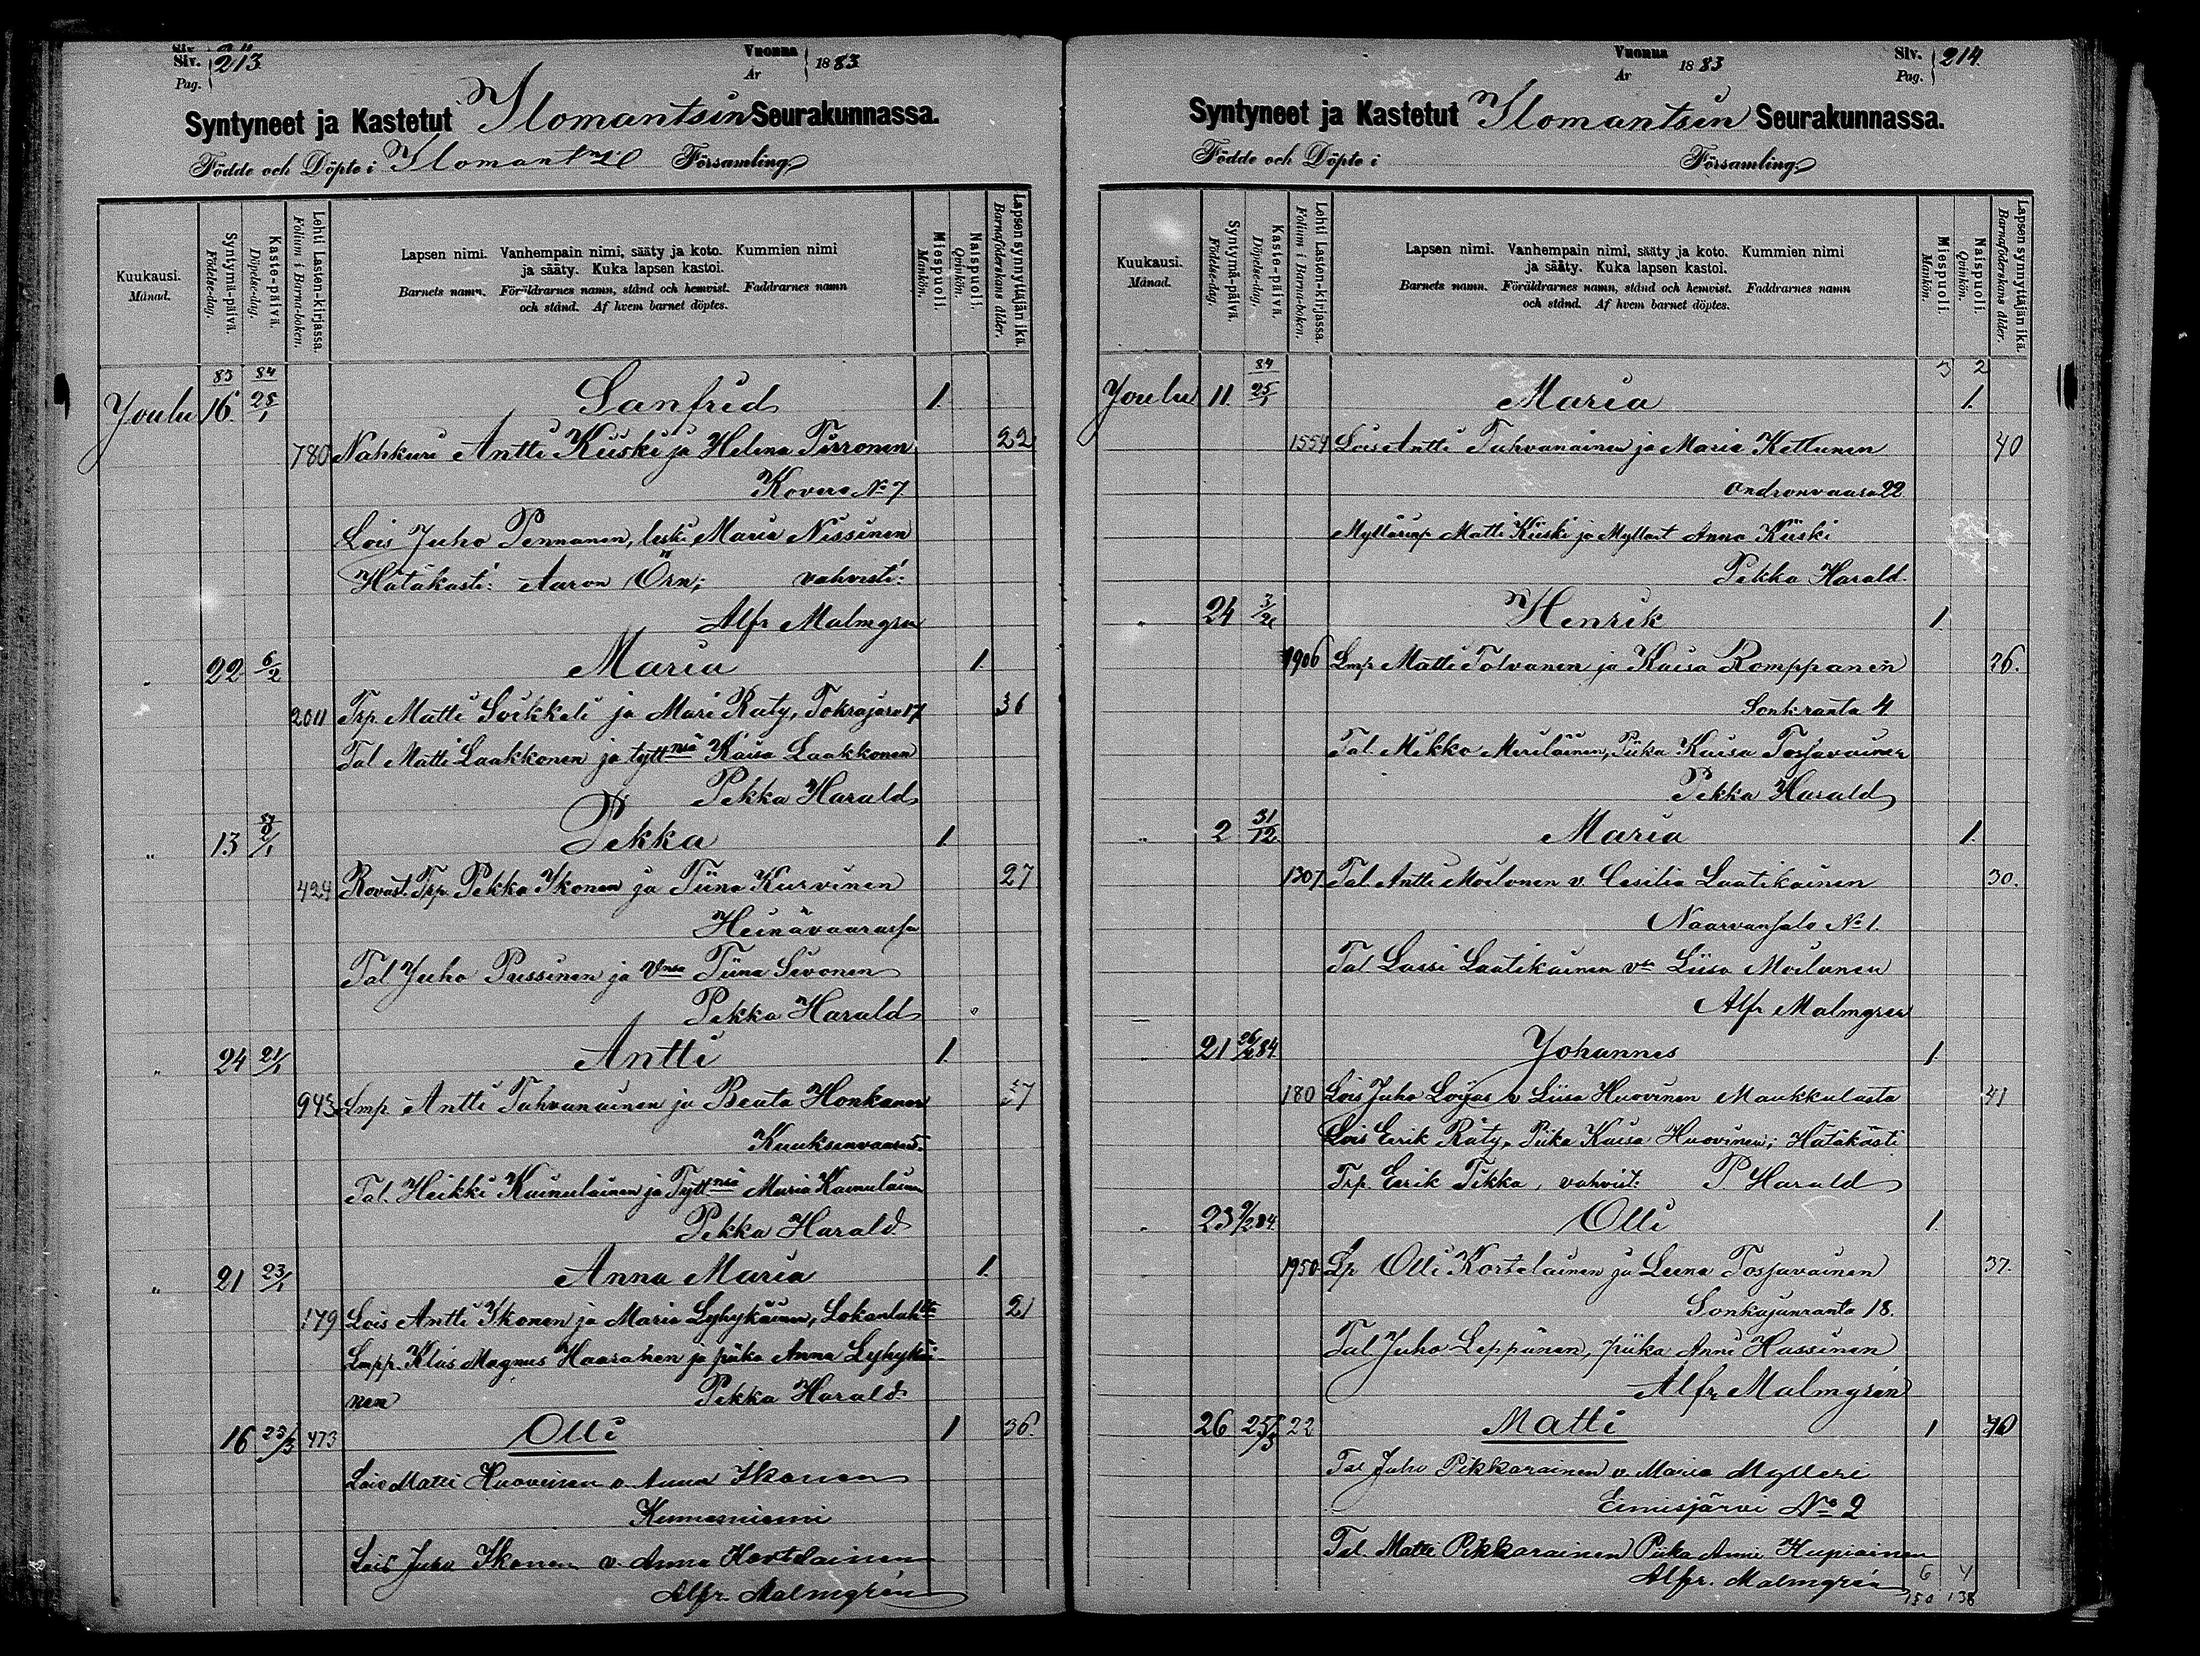 Siv. Pag. 213.
Vuonna År 1883
Syntyneet ja Kastetut Ilomantsin Seurakunnassa.
Födde och Döpte i Ilomants Församling
Kuukausi. Månad.
Syntymä-päivä. Födelse-dag.
Kaste-päivä. Döpelse-dag.
Lehti Lasten-kirjassa. Folium i Barna-boken.
Lapsen nimi. Vanhempain nimi, sääty ja koto. Kummien nimi
ja sääty. Kuka lapsen kastoi.
Barnets namn. Föräldrarnes namn, stånd och hemvist. Faddrarnes namn
och stånd. Af hvem barnet döptes.
Miespuoli. Mankön.
Naispuoli. Qvinkön.
Lapsen synnyttäjän ikä. Barnaföderskans ålder.
83 84
Joulu 16. 25/1 Sanfrid 1.
780 Nahkuri Antti Kiiski ja Helena Tirronen 22
Kovero No 7
Lois Juho Pennanen, leski Maria Nissinen
Hätäkasti: Aaron Örn; vahvisti:
Alfr Malmgren
" 22 6/2 Maria 1.
2011 Trp. Matti Soikkeli ja Mari Räty, Tokrajärvi 17 36
Tal Matti Laakkonen ja tytt nsä Kaisa Laakkonen
Pekka Harald
" 13 Pekka 1.
424 Rovast. Trp. Pekka Ikonen ja Tiina Kurvinen 27
Heinävaarassa
Tal Juho Pussinen ja Vnsa Tiina Sivonen
Pekka Harald
" 24 21/1 Antti 1.
943 Lmp. Antti Tahvanainen ja Beata Honkanen
Kuuksenvaara 5.
Tal. Heikki Kainulainen ja Tytt nsä Maria Kainulainen
Pekka Harald
" 21 23/1 Anna Maria 1.
179 Lois Antti Ikonen ja Maria Lyhykäinen, Lokanlahti 21
Lmpp. Klas Magnus Haaranen ja piika Anna Lyhykäi-
nen Pekka Harald
16 25/3 473 Olli 1 36.
Lois Matti Huovinen v. Anna Ikonen
Kuuesniemi
Lois Juho Ikonen v. Anna Hortelainen
Alfr. Malmgrén
Vuonna År 1883
Siv. Pag. 214.
Syntyneet ja Kastetut Ilomantsin Seurakunnassa.
Födde och Döpte i Församling
Kuukausi. Månad.
Syntymä-päivä. Födelse-dag.
Kaste-päivä. Döpelse-dag.
Lehti Lasten-kirjassa. Folium i Barna-boken.
Lapsen nimi. Vanhempain nimi, sääty ja koto. Kummien nimi
ja sääty. Kuka lapsen kastoi.
Barnets namn. Föräldrarnes namn, stånd och hemvist. Faddrarnes namn
och stånd. Af hvem barnet döptes.
Miespuoli. Mankön.
Naispuoli. Qvinkön.
Lapsen synnyttäjän ikä. Barnaföderskans ålder.
84 3 2
Joulu 11. 25/1 Maria 1.
1554 Lois Antti Tahvanainen ja Maria Kettunen 40
Andronvaara 22
Myllärinp Matti Kiiski ja Myllärit Anna Kiiski
Pekka Harald.
" 24 Henrik 1.
1906 Lmp Matti Tolvanen ja Kaisa Romppanen 26.
Sonkranta 4
Tal. Mikko Meriläinen, Piika Kaisa Tossavainen
Pekka Harald
" 2 31/12 Maria 1.
1307 Tal. Antti Moilonen v. Cesilia Laatikainen 30.
Naarvansalo No 1.
Tal Lassi Laatikainen vn Liisa Moilonen
Alfr Malmgren
21 84 Johannes 1.
180 Lois Juho Löyas v Liisa Huovinen Maukkulasta 41
Lois Eerik Räty, Piika Kaisa Huovinen; Hätäkasti
Trp. Eerik Tikka, vahvist: P. Harald
" 23 9/2 84. Olli 1.
1950 Lp Olli Kortelainen ja Leena Tossavainen 37.
Sonkajanranta 18.
Tal Juho Leppänen, piika Anni Hassinen
Alfr Malmgrén
26 25/3 22 Matti 1 40
Tal Juho Pikkarainen v. Maria Mylleri
Eimisjärvi No 2
Tal. Matti Pikkarainen Piika Anni Kupiainen
Alfr. Malmgrén 6 4
150 138